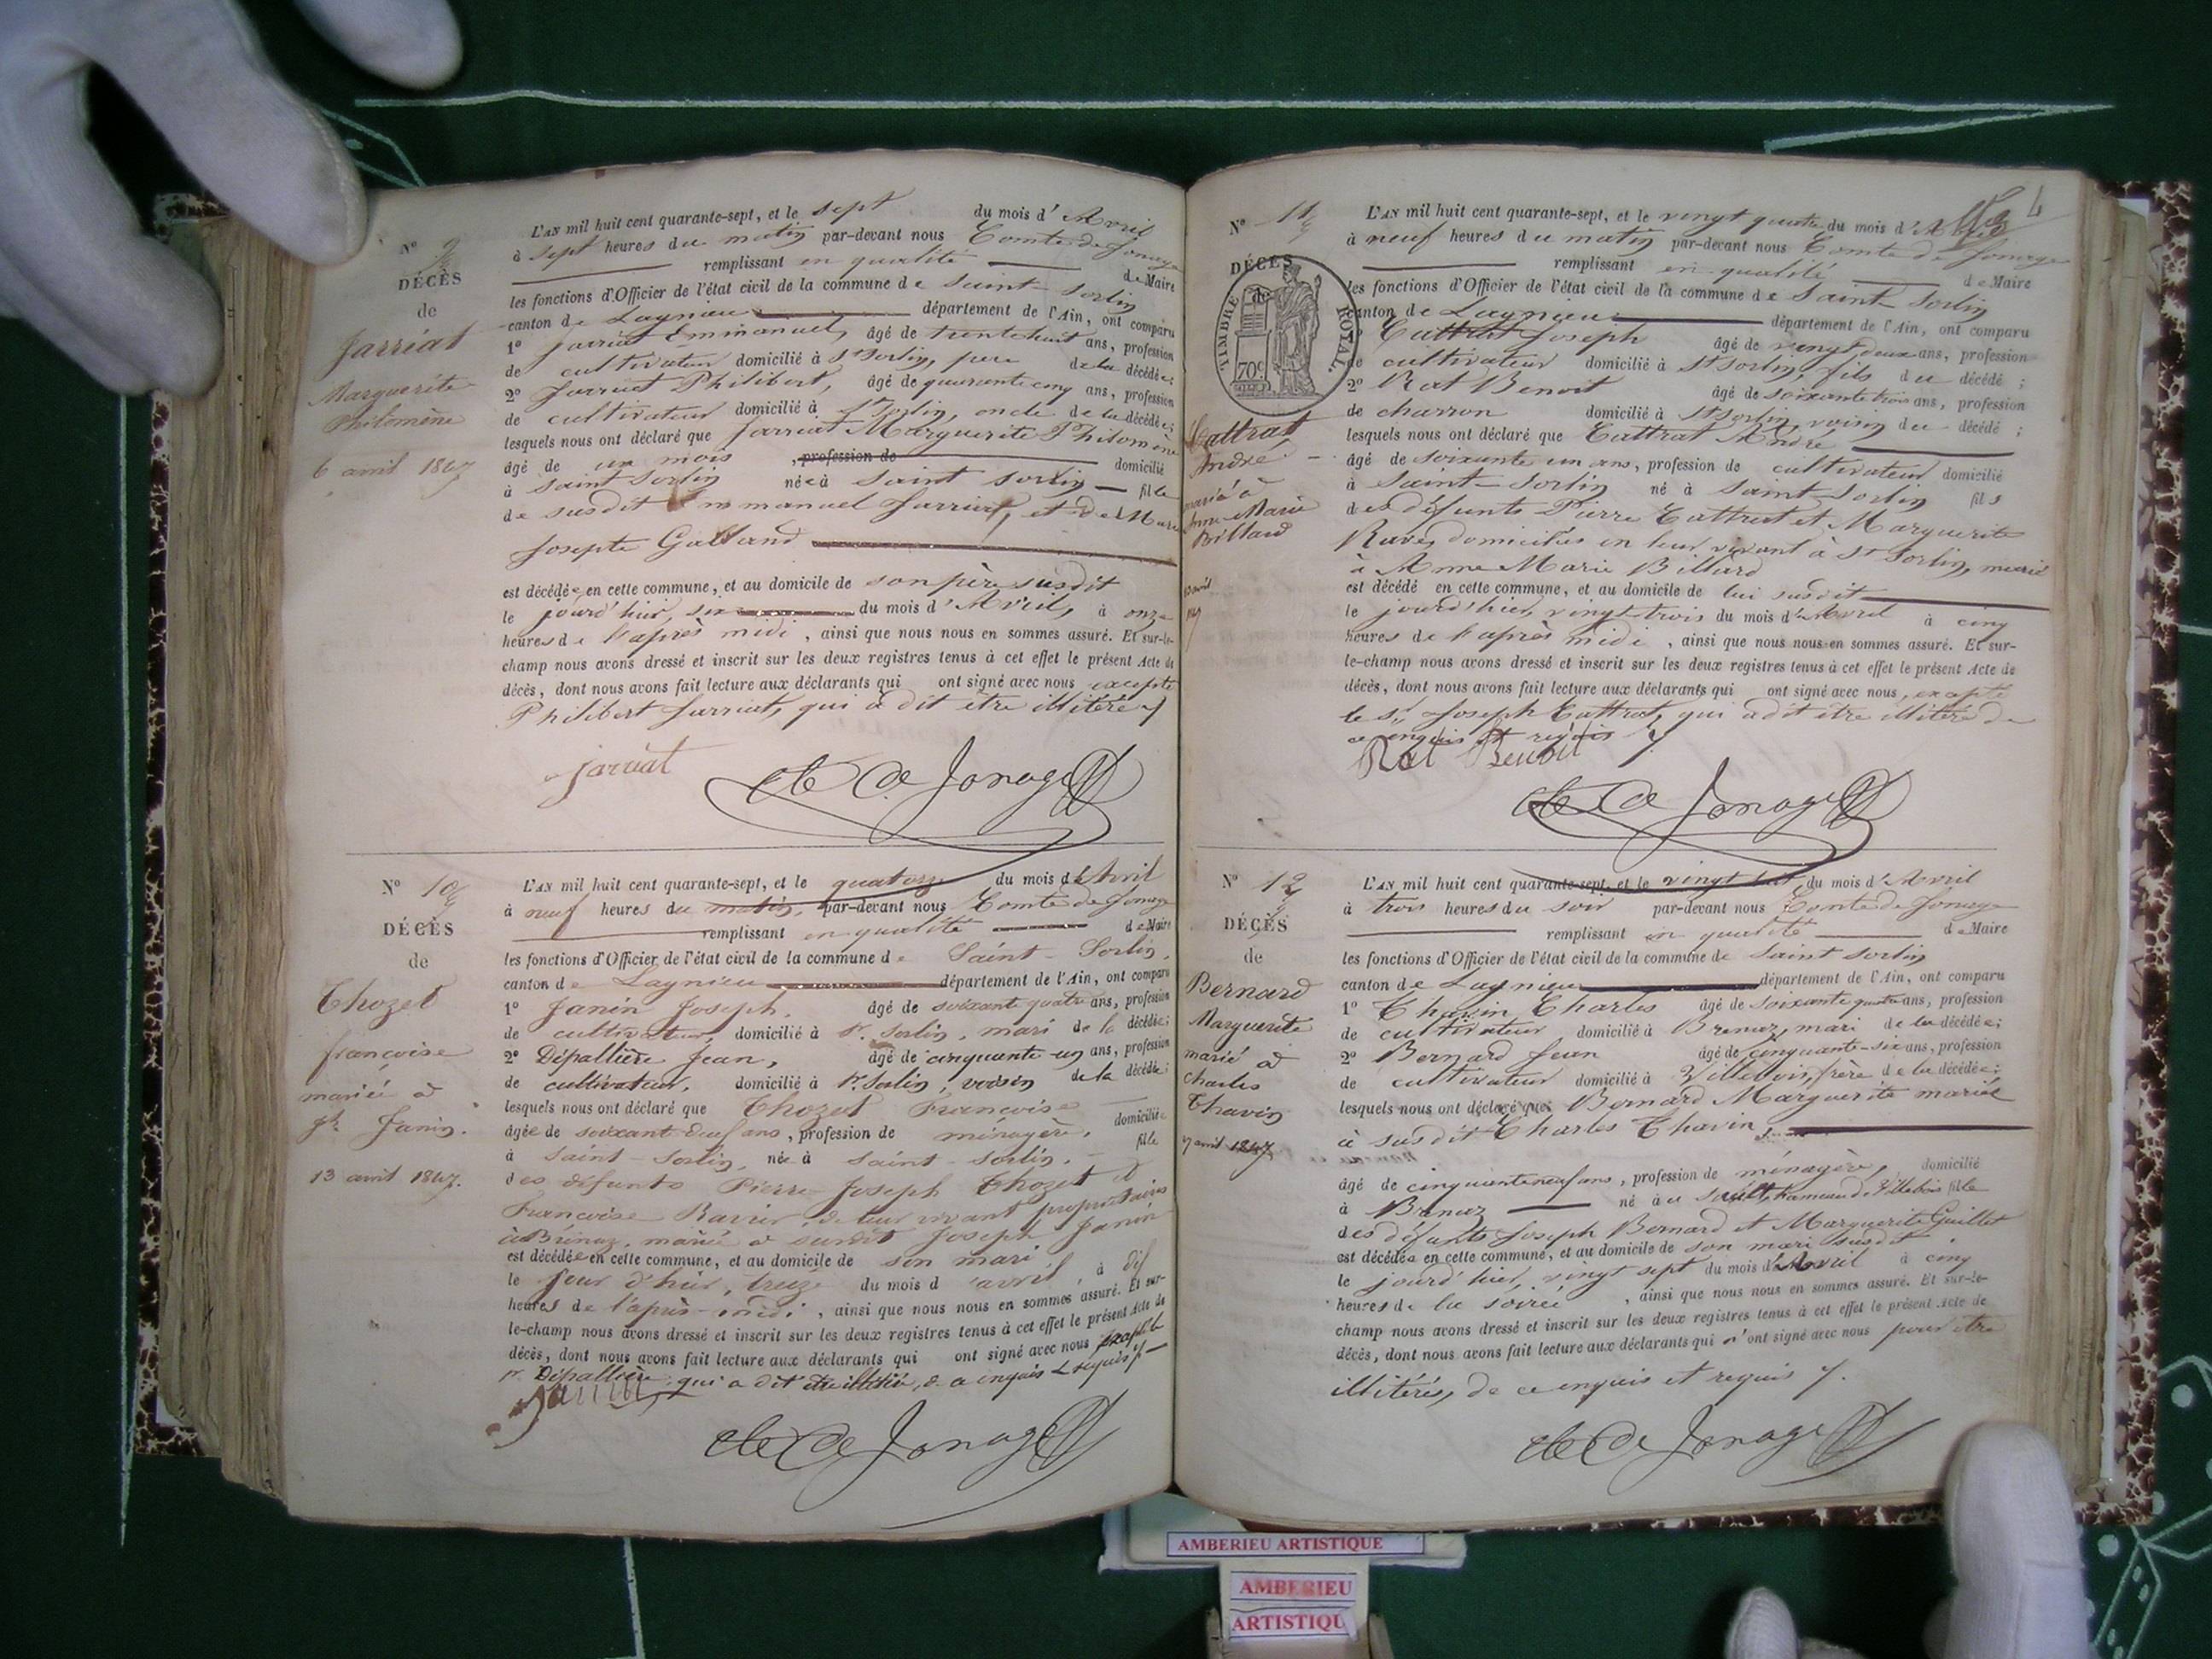 N° 9
DÉCÈS
de
Jarriat
Marguerite
Philomène
6 avril 1847
L'AN mil huit cent quarante-sept, et le sept du mois d'Avril
à sept heures du matin par-devant nous Comte de Jonage
remplissant en qualité de Maire
les fonctions d'Officier de l'état civil de la commune de Saint-Sorlin
canton de Lagnieu département de l'Ain, ont comparu
1° Jarriat Emmanuel, âgé de trente huit ans, profession
de cultivateur domicilié à St Sorlin, père de la décédée;
2° Jarriat Philibert, âgé de quarante cinq ans, profession
de cultivateur domicilié à St Sorlin, oncle de la décédée;
lesquels nous ont déclaré que Jarriat Marguerite Philomène
âgé de un mois, profession de domicilié
à Saint Sorlin née à Saint Sorlin fille
de susdit Emmanuel Jarriat, et de Marie
Josepte Galland
est décédée en cette commune, et au domicile de son père susdit
le jourd'hier, six du mois d'Avril, à onze
heures de l'après midi, ainsi que nous nous en sommes assuré. Et sur-le-
champ nous avons dressé et inscrit sur les deux registres tenus à cet effet le présent Acte de
décès, dont nous avons fait lecture aux déclarants qui ont signé avec nous excepté
Philibert Jarriat, qui a dit être illitéré
jariat
cte de Jonage
N° 10
DÉCÈS
de
Thozet
françoise
mariée à
jh Janin.
13 avril 1847.
L'AN mil huit cent quarante-sept, et le quatorze du mois d'Avril
à neuf heures du matin, par-devant nous Comte de Jonage
remplissant en qualité de Maire
les fonctions d'Officier de l'état civil de la commune de Saint-Sorlin,
canton de Lagnieu département de l'Ain, ont comparu
1° Janin Joseph, âgé de soixante quatre ans, profession
de cultivateur, domicilié à St. Sorlin, mari de la décédée;
2° Dépallière Jean, âgé de cinquante-un ans, profession
de cultivateur, domicilié à St. Sorlin, voisin de la décédée;
lesquels nous ont déclaré que Thozet Françoise
âgée de soixant deux ans, profession de ménagère, domiciliée
à Saint-Sorlin, née à Saint-Sorlin, fille
des défunts Pierre-Joseph Thozet et
Françoise Ravier, de leur vivant propriétaires
à Brénaz, mariée à susdit Joseph Janin
est décédée en cette commune, et au domicile de son mari
le jour d'hier, treize du mois d'avril, à dix
heures de l'après-midi, ainsi que nous nous en sommes assuré. Et sur-
le-champ nous avons dressé et inscrit sur les deux registres tenus à cet effet le présent Acte de
décès, dont nous avons fait lecture aux déclarants qui ont signé avec nous excepté le
Sr Dépallière qui a dit être illitéré, de ce enquis & requis
Janin
cte de Jonage
4
N° 11
DÉCÈS
de
TIMBRE ROYAL.
70c
Cattrat
André
marié à
Anne Marie
Billard
23 avril
1847
L'AN mil huit cent quarante-sept, et le vingt quatre du mois d'Avril
à neuf heures du matin par-devant nous Comte de Jonage
remplissant en qualité de Maire
les fonctions d'Officier de l'état civil de la commune de Saint Sorlin
canton de Lagnieu département de l'Ain, ont comparu
1° Cattrat Joseph âgé de vingt deux ans, profession
de cultivateur domicilié à St Sorlin, fils du décédé;
2° Rat Benoit âgé de soixante trois ans, profession
de charron domicilié à St Sorlin, voisin du décédé;
lesquels nous ont déclaré que Cattrat André
âgé de soixante un ans, profession de cultivateur domicilié
à Saint-Sorlin né à Saint-Sorlin fils
des défunts Pierre Cattrat et Marguerite
domiciliés en leur vivant à St Sorlin, marié
à Anne Marie Billard
est décédé en cette commune, et au domicile de lui susdit
le jourd'hier, vingt trois du mois d'Avril à cinq
heures de l'après midi, ainsi que nous nous en sommes assuré. Et sur-
le-champ nous avons dressé et inscrit sur les deux registres tenus à cet effet le présent Acte de
décès, dont nous avons fait lecture aux déclarants qui ont signé avec nous, excepté
le Sr Joseph Cattrat, qui a dit être illitéré de
ce enquis et requis
Rat Benoit
cte de Jonage
N° 12
DÉCÈS
de
Bernard
Marguerite
marié à
Charles
Thavin
27 avril 1847
L'AN mil huit cent quarante-sept, et le vingt huit du mois d'Avril
à trois heures du soir par-devant nous Comte de Jonage
remplissant en qualité de Maire
les fonctions d'Officier de l'état civil de la commune de Saint Sorlin
canton de Lagnieu département de l'Ain, ont comparu
1° Thavin Charles âgé de soixante quatre ans, profession
de cultivateur domicilié à Brenaz, mari de la décédée;
2° Bernard Jean âgé de cinquante-six ans, profession
de cultivateur domicilié à Villebois, frère de la décédée;
lesquels nous ont déclaré que Bernard Marguerite mariée
à susdit Charles Thavin,
âgé de cinquante neuf ans, profession de ménagère, domicilié
à Brenaz né à hameau de Villebois fille
des défunts Joseph Bernard et Marguerite Guillet
est décédée en cette commune, et au domicile de son mari susdit
le jourd'hier, vingt sept du mois d'Avril à cinq
heures de la soirée, ainsi que nous nous en sommes assuré. Et sur-le-
champ nous avons dressé et inscrit sur les deux registres tenus à cet effet le présent Acte de
décès, dont nous avons fait lecture aux déclarants qui n'ont signé avec nous pour être
illitérés, de ce enquis et requis
cte de Jonage
AMBERIEU ARTISTIQUE
AMBERIEU
ARTISTIQU